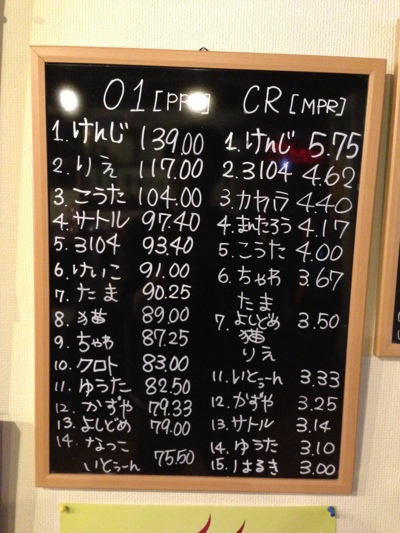 01 [PPR]
1. けんじ 139.00
2. りえ 117.00
3. こうた 104.00
4. サトル 97.40
5. 3104 93.40
6. けいこ 91.00
7. たま 90.25
8. 猫 89.00
9. ちゃわ 87.25
10. クロト 83.00
11. ゆうた 82.50
12. かずや 79.33
13. よしどめ 79.00
14. なっこ
いとぅーん 75.50
CR [MPR]
1. けんじ 5.75
2. 3104 4.62
3. カワハラ 4.40
4. まんたろう 4.17
5. こうた 4.00
6. ちゃわ 3.67
たま
7. よしどめ 3.50
猫
りえ
11. いとぅーん 3.33
12. かずや 3.25
13. サトル 3.14
14. ゆうた 3.10
15. はるき 3.00